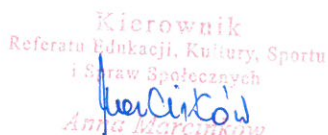 Kierownik
Referatu Edukacji, Kultury, Sportu
i Spraw Społecznych
Marcinków
Anna Marcinków